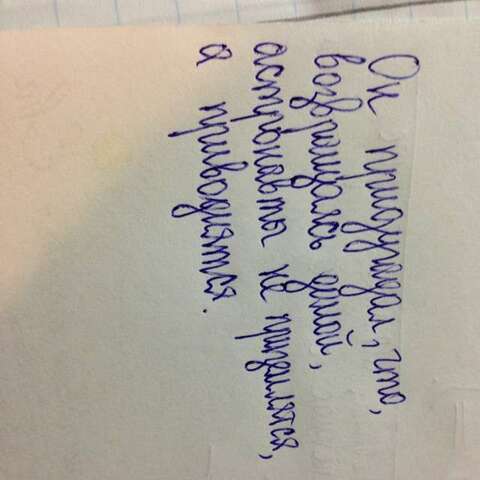 Он предугадал, что,
возвращаясь домой,
астронавты не приземлятся,
а приводнятся.